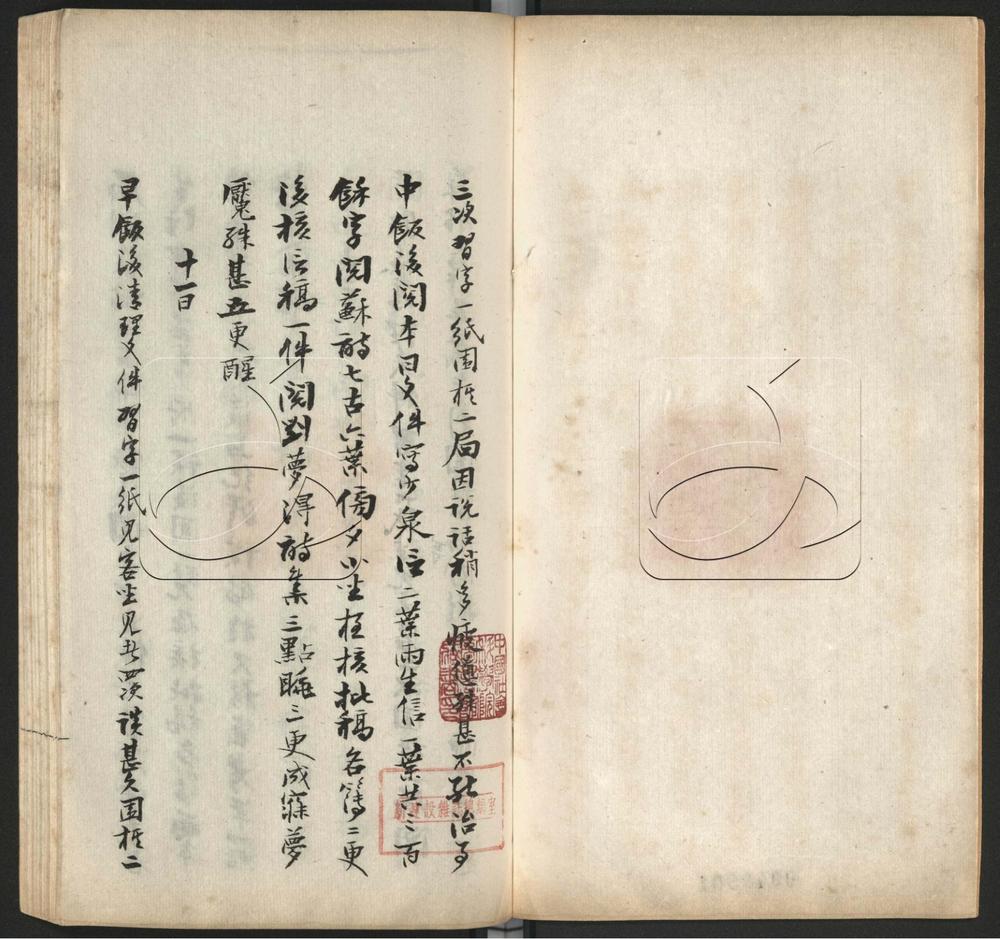 三次習字一紙圍棋二局因說話稍多疲殊甚不能治事
中飯後閱本日文件寫少泉信二葉雨生信一葉共三百
餘字閱蘇詩七古六葉傍夕小坐夜核批稿各簿二更
後核信稿一件閱劉夢得詩集三點睡三更成寐夢
魘殊甚五更醒
十一日
早飯後清理文件習字一紙見客坐見者四次談甚久圍棋二
新建設雜誌編輯室